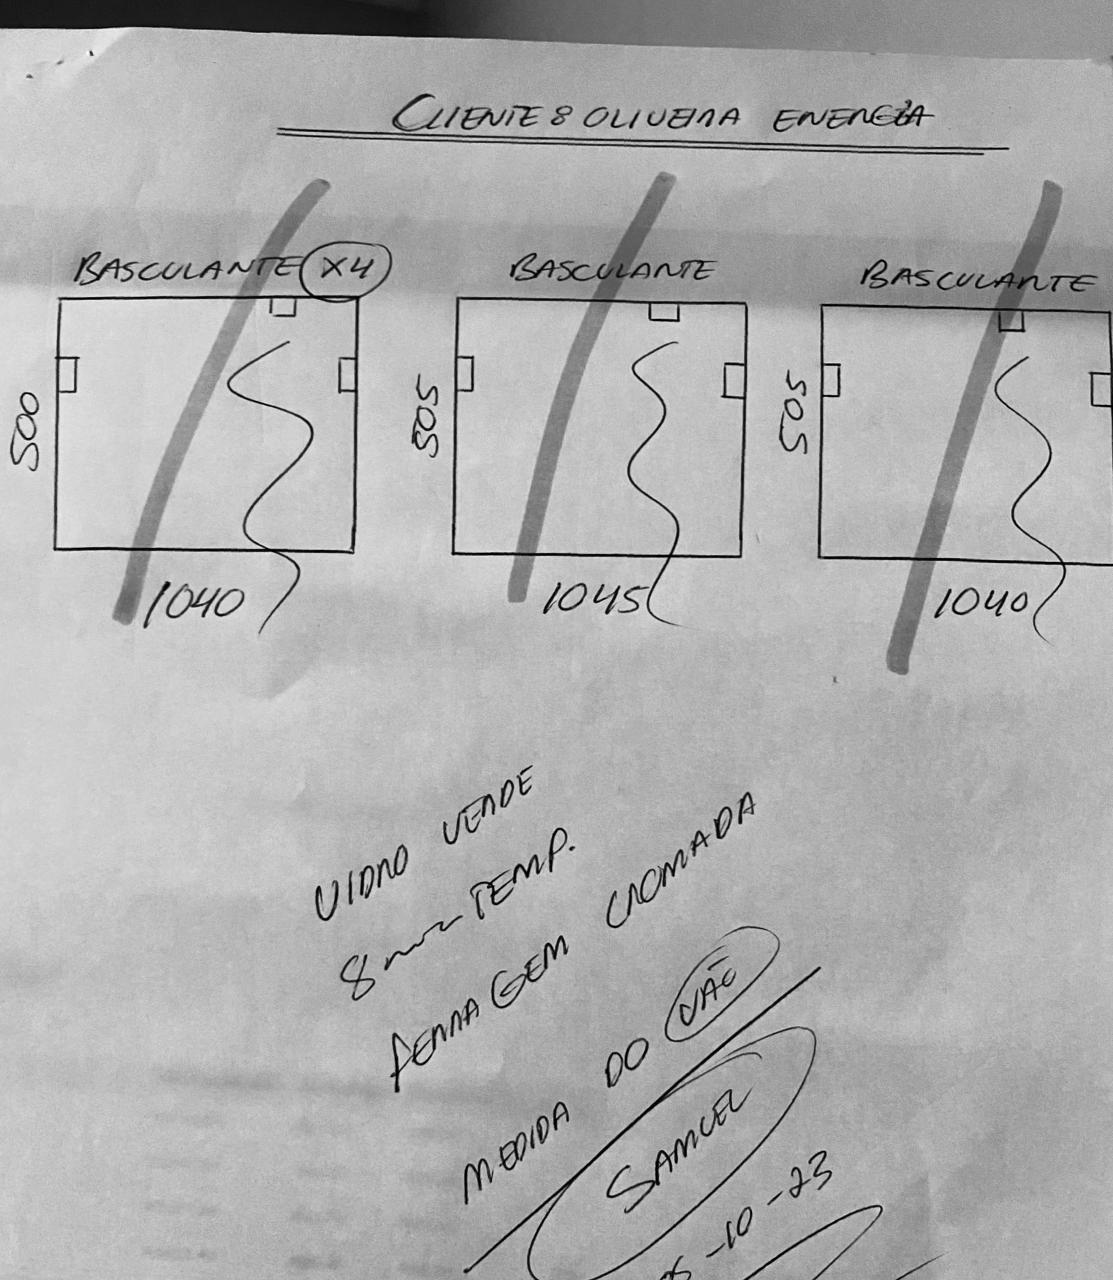 CLIENTE: OLIVEIRA ENERGIA
BASCULANTE X4
500
1040
BASCULANTE
505
1045
BASCULANTE
505
1040
VIDRO VERDE
8mm TEMP.
FERRAGEM CROMADA
MEDIDA DO VÃO
SAMUEL
-10-23